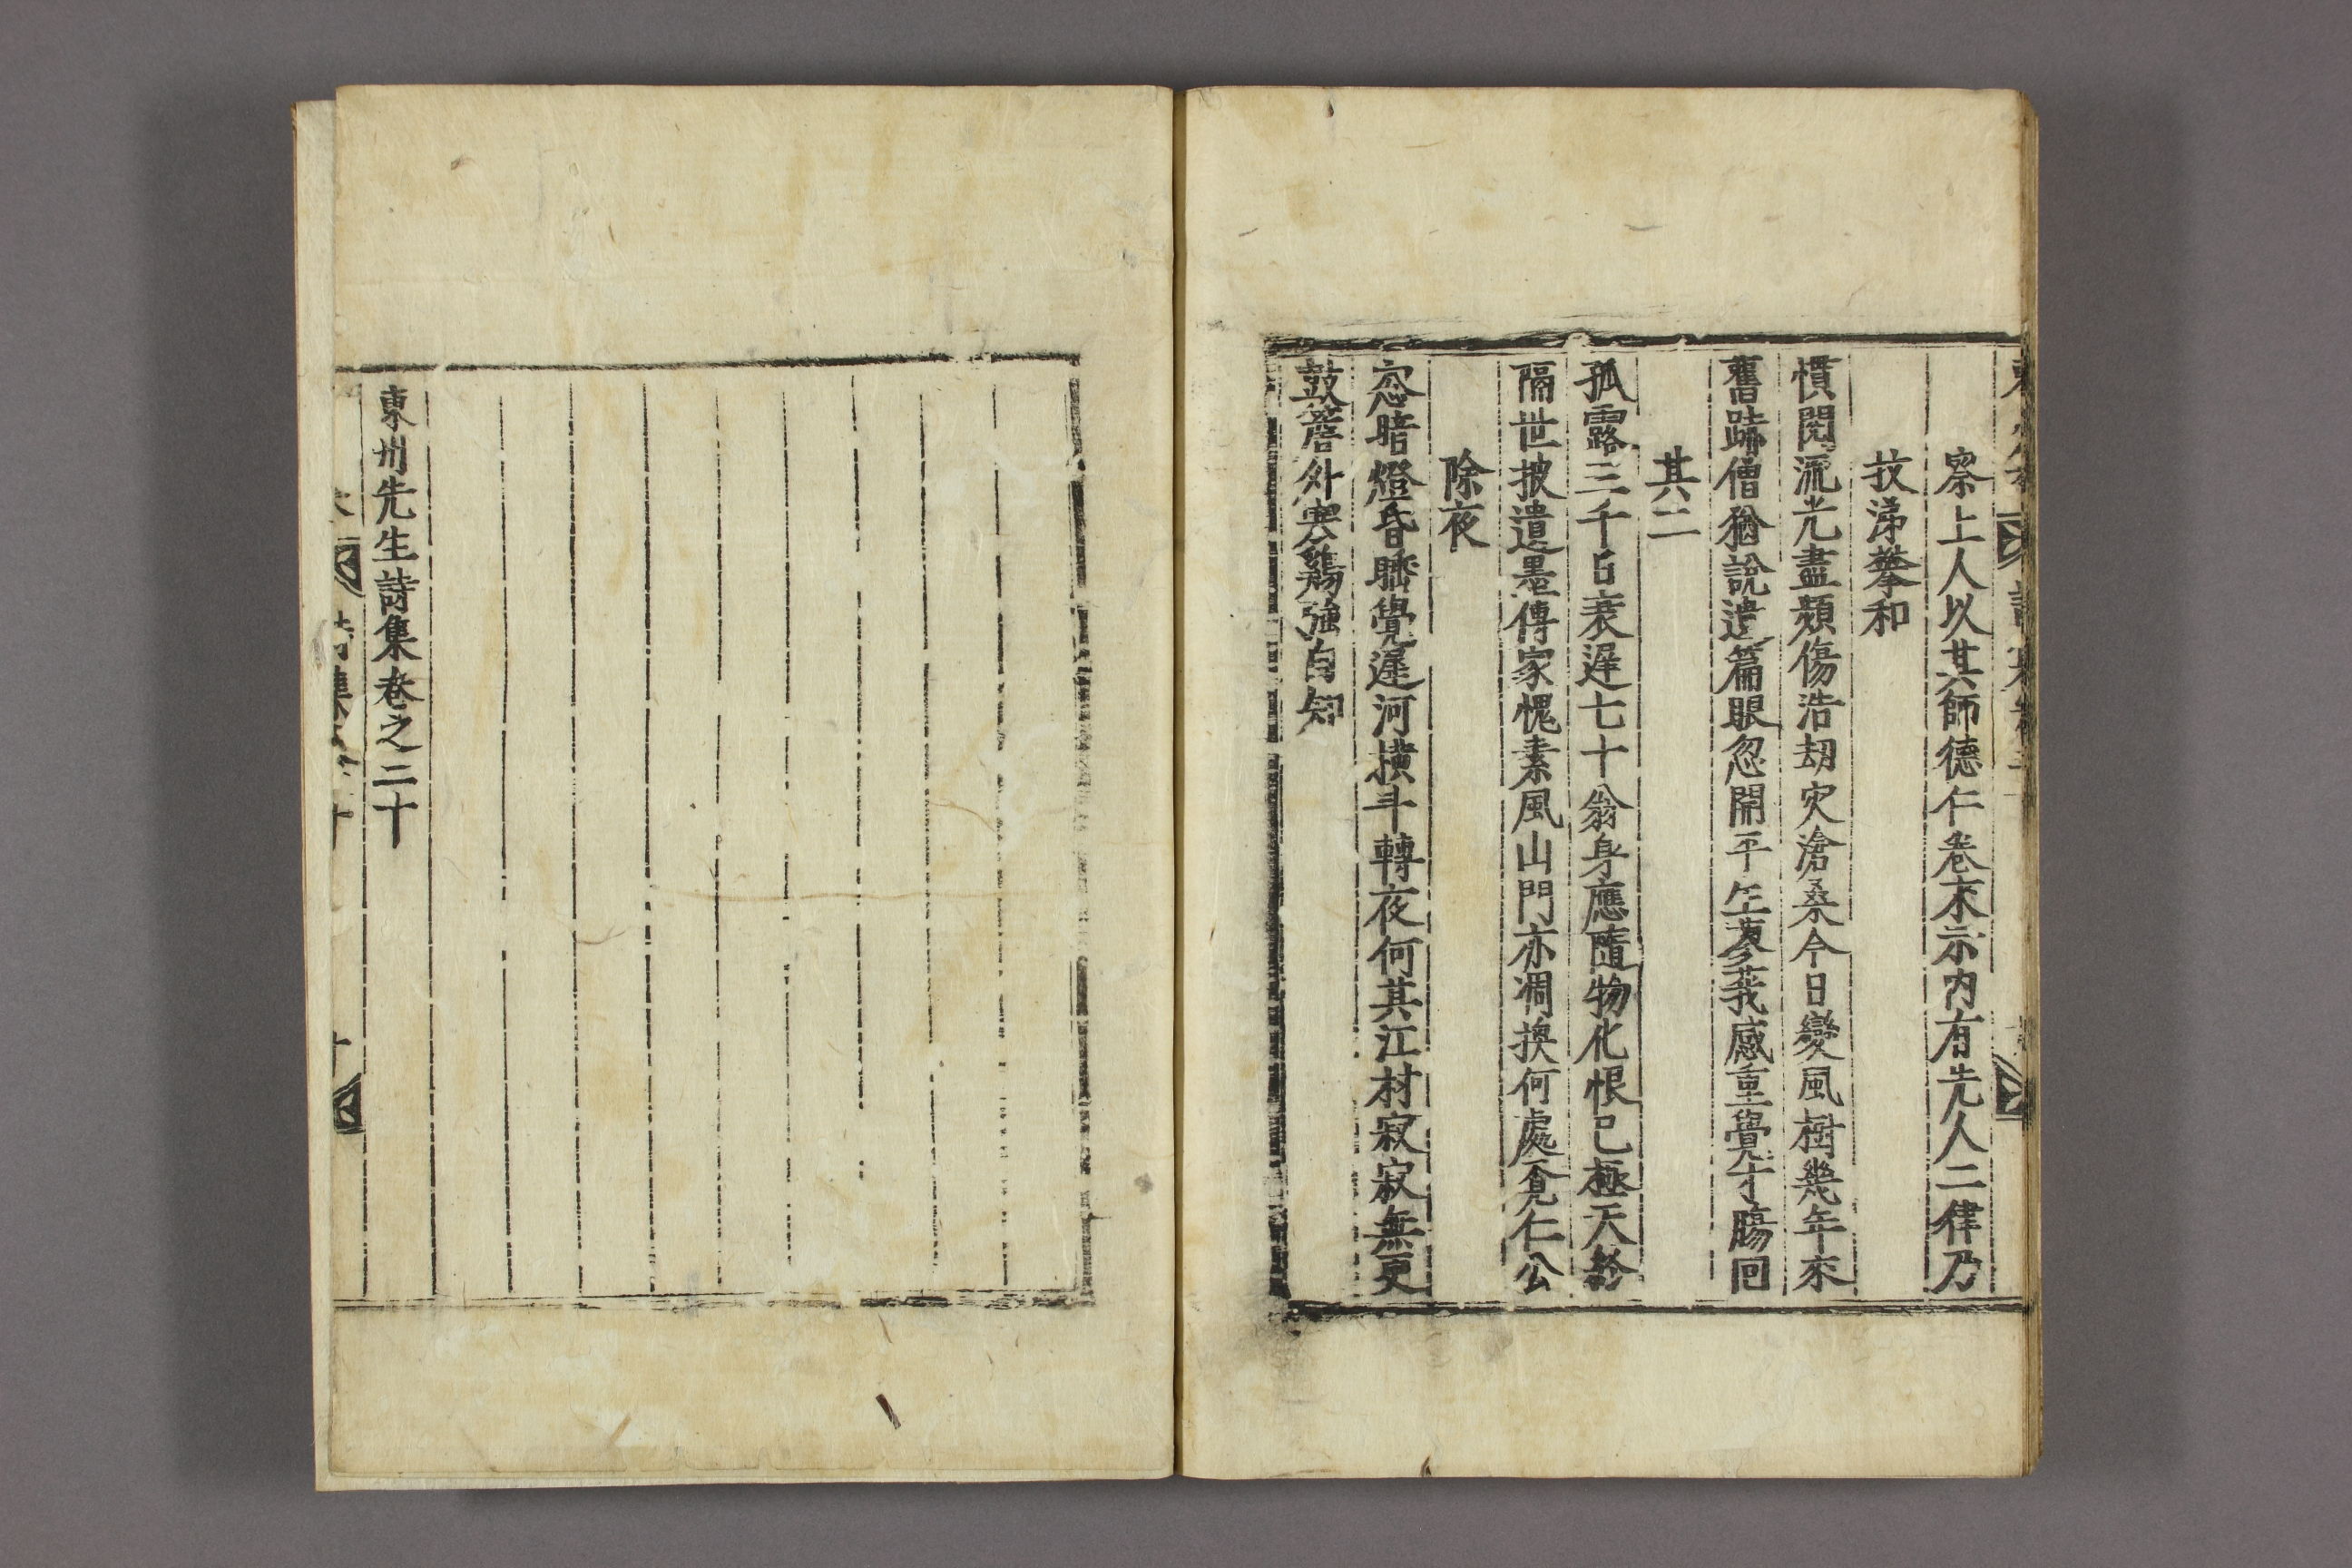 察上人以其師德仁卷末示內有先人二律乃
抆涕攀和
慣閱流光盡頹傷浩劫灾滄桑今日變風樹幾年來
舊跡僧猶說遺篇眼忽開平生蓼莪感重覺寸膓回
其二
孤露三千日衰遲七十翁身應隨物化恨已極天
隔世披遺墨傳家愧素風山門亦凋換何處覔仁公
除夜
窓暗燈昏睡覺遲河橫斗轉夜何其江村寂寂無更
鼓簷外寒鷄強自知
東州先生詩集卷之二十